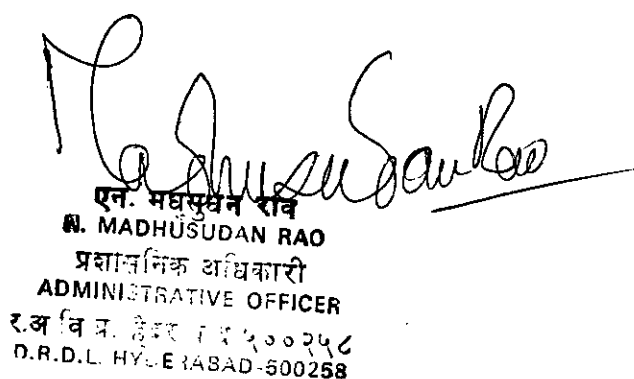 Madhusudan Rao
एन. मधुसुधन राव
N. MADHUSUDAN RAO
प्रशासनिक अधिकारी
ADMINISTRATIVE OFFICER
र.अ वि प्र. ५००२५८
D.R.D.L. HYDERABAD-500258